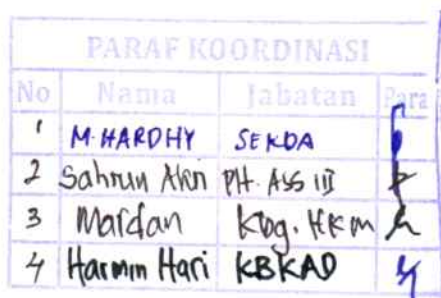 PARAF KOORDINASI
No Nama Jabatan Para
1 M. HARDHY SEKDA
2 Sahrun PH. ASS III
3 Mardan Kbg. HKM
4 Harmin Hari KBKAD